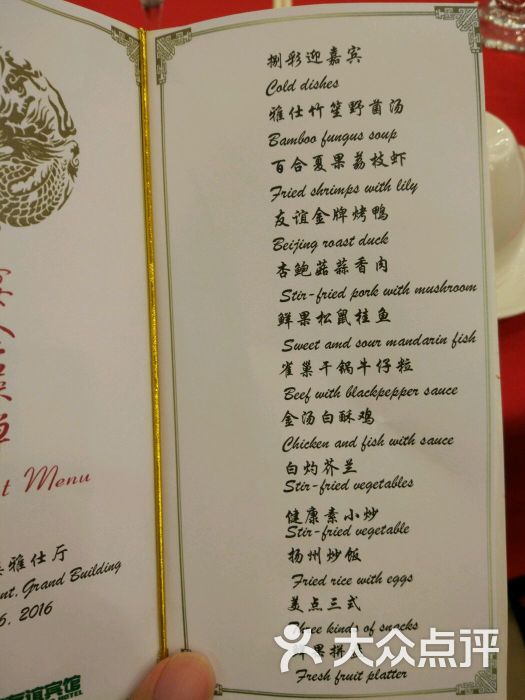 捌彩迎嘉宾
Cold dishes
雅仕竹笙野菌汤
Bamboo fungus soup
百合夏果荔枝虾
Fried shrimps with lily
友谊金牌烤鸭
Beijing roast duck
杏鲍菇蒜香肉
Stir-fried pork with mushroom
鲜果松鼠桂鱼
Sweet amd sour mandarin fish
雀巢干锅牛仔粒
Beef with blackpepper sauce
金汤白酥鸡
Chicken and fish with sauce
白灼芥兰
Stir-fried vegetables
健康素小炒
Stir-fried vegetable
扬州炒饭
Fried rice with eggs
美点三式
Three kinds of snacks
鲜果拼盘
Fresh fruit platter
Menu
雅仕厅
Grand Building
6, 2016
友谊宾馆
HOTEL
大众点评